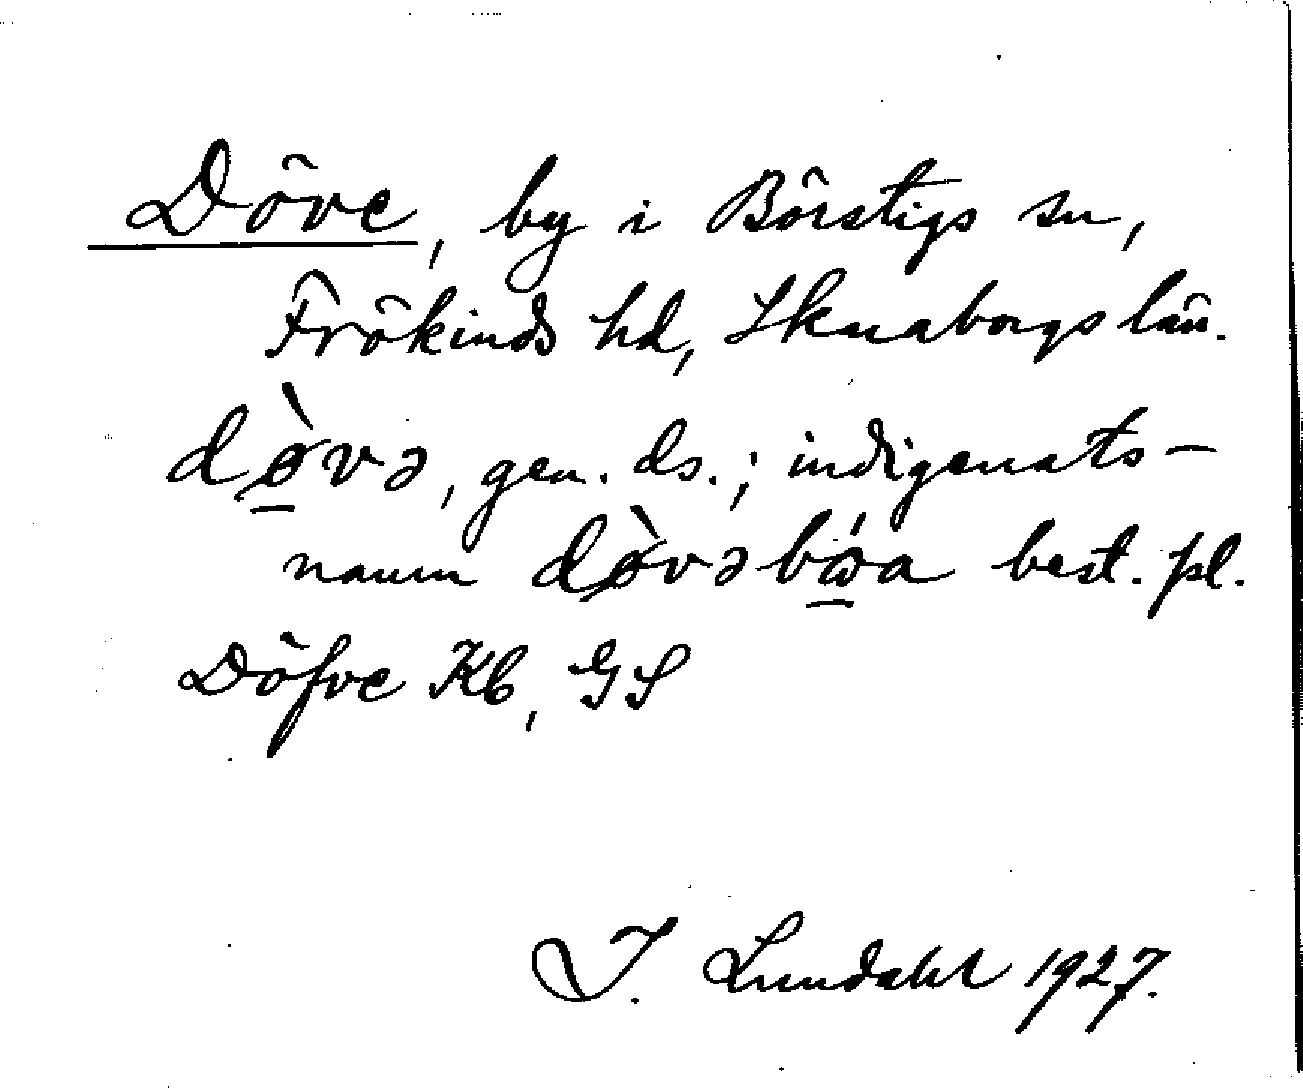 Döve, by i Börstigs sn,
Frökinds hd, Skaraborgs län.
dø̀və, gen. ds.; indigenats-
namn dø̀vəbǿa best. pl.
Döfve Kb, GS
I. Lundahl 1927.